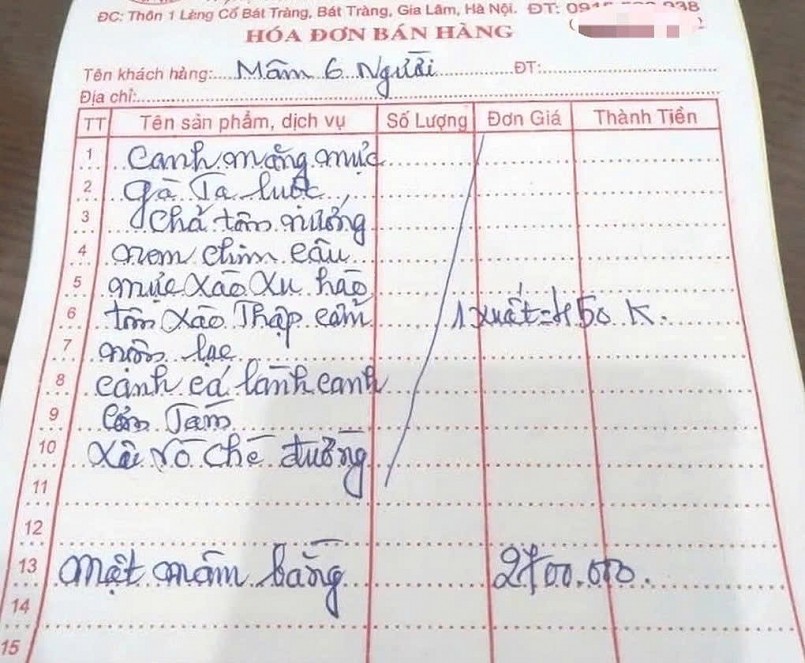 ĐC: Thôn 1 Làng Cổ Bát Tràng, Bát Tràng, Gia Lâm, Hà Nội. ĐT: 091
HÓA ĐƠN BÁN HÀNG
Tên khách hàng: Mâm 6 Người ĐT:
Địa chỉ:
TT Tên sản phẩm, dịch vụ Số Lượng Đơn Giá Thành Tiền
1 Canh măng mực
2 gà Ta luộc
3 chả tôm nướng
4 nem chim câu
5 mực xào Xu hào
6 tôm xào Thập cẩm 1 xuất = 450 K.
7 nộm lạc
8 canh cá lành canh
9 cơm Tám
10 Xôi vò chè đường
11
12
13 một mâm bằng 2700.000.
14
15